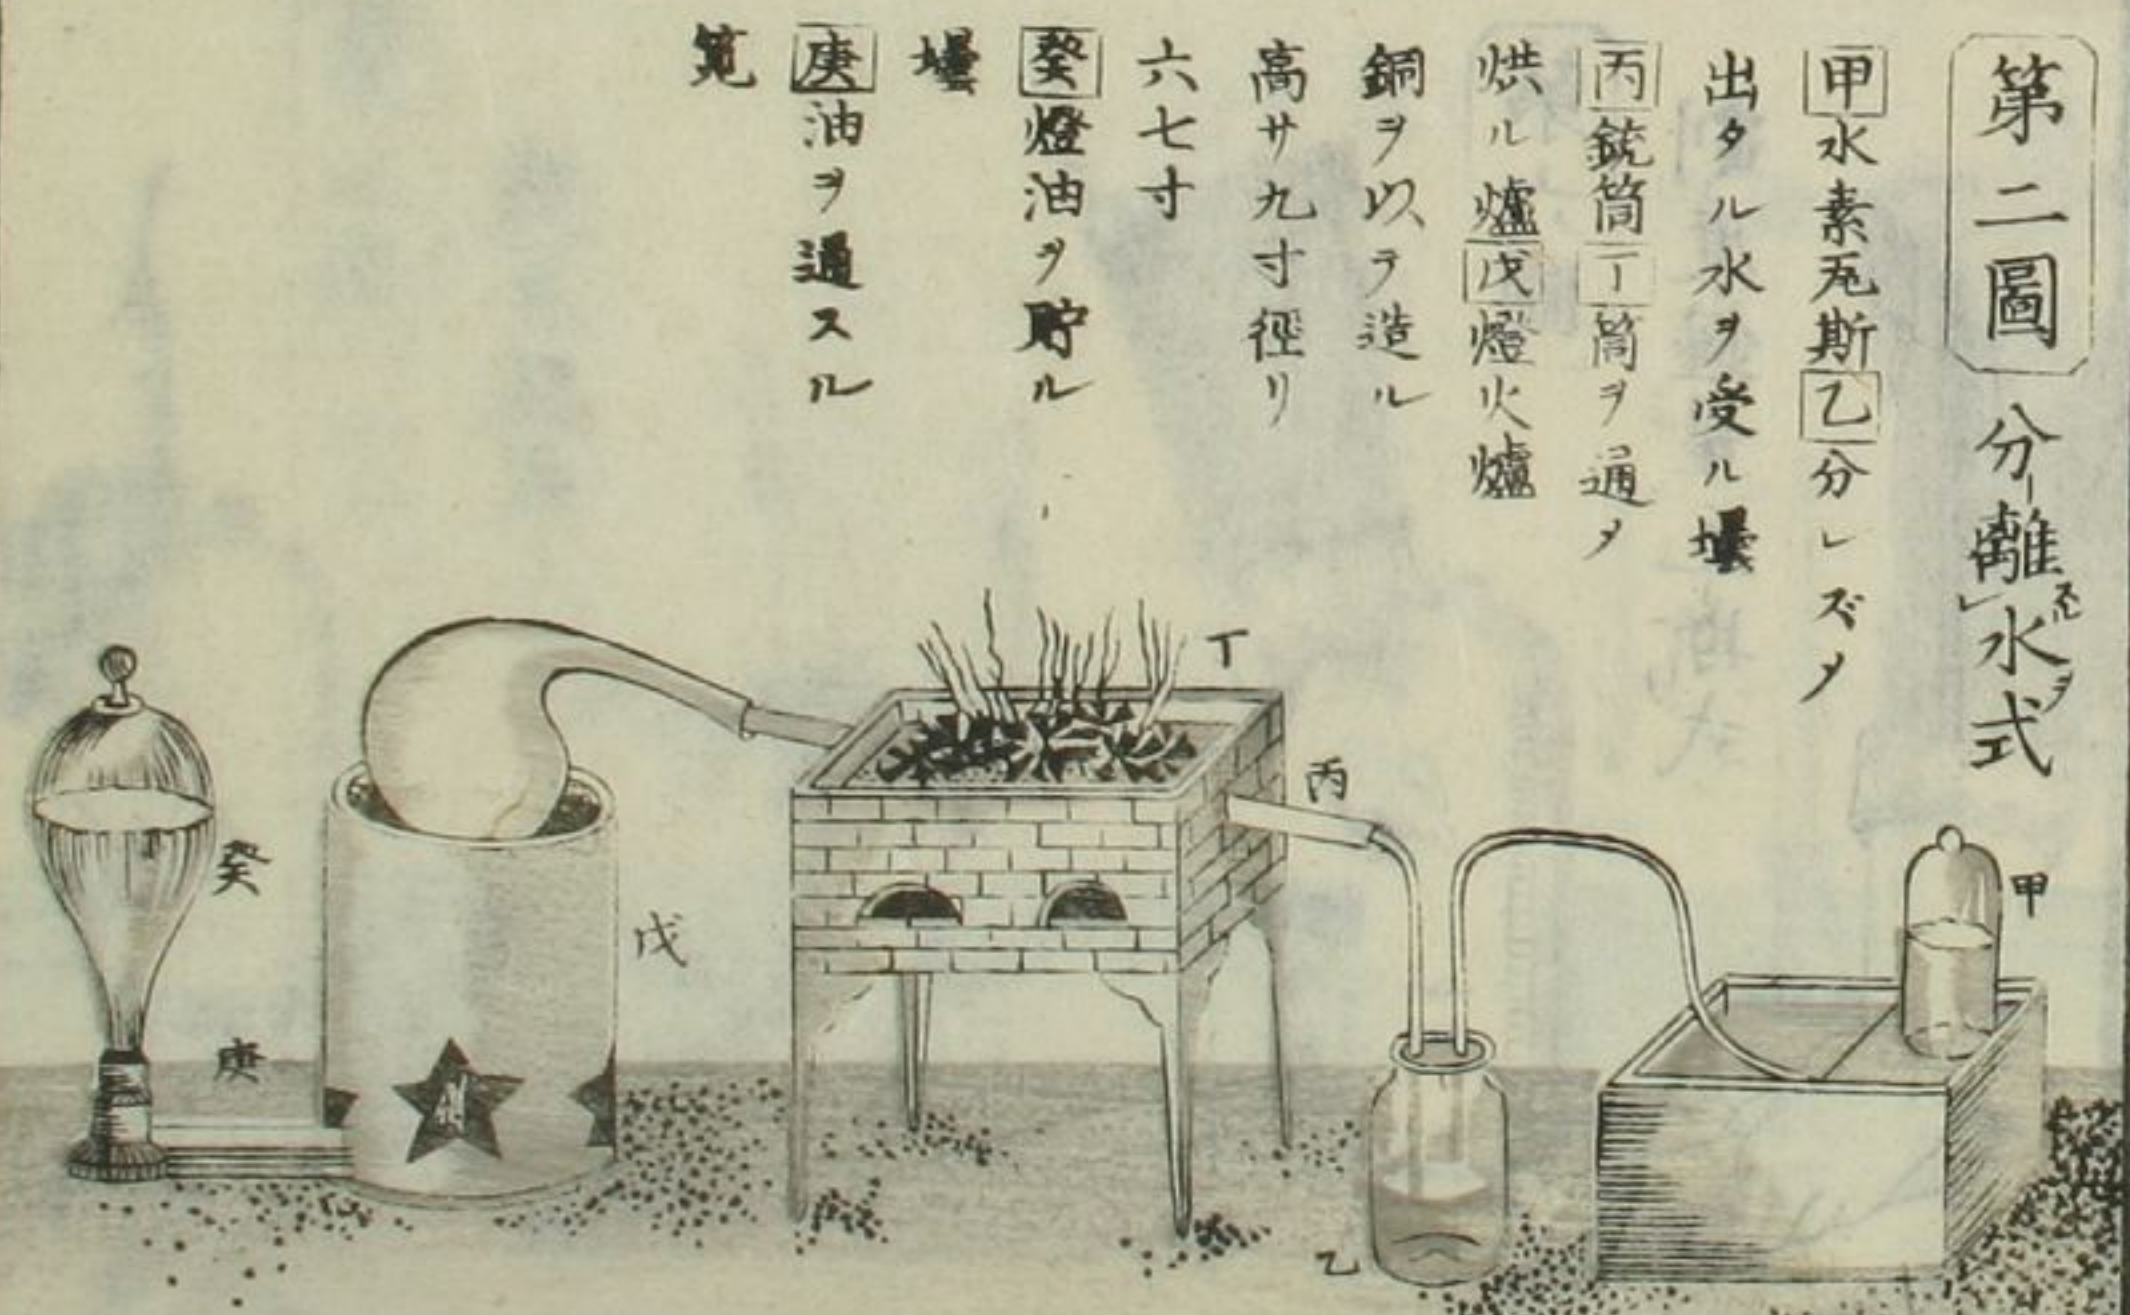 第二圖 分離スルレ水ヲ式
甲水素瓦斯乙分レズ〆
出タル水ヲ受ル壜
丙銃筒丁筒ヲ通〆
烘ル爐戊燈火爐
銅ヲ以テ造ル
高サ九寸徑リ
六七寸
癸燈油ヲ貯ル
壜
庚油ヲ通スル
筧
甲
乙
丙
丁
戊
庚
癸